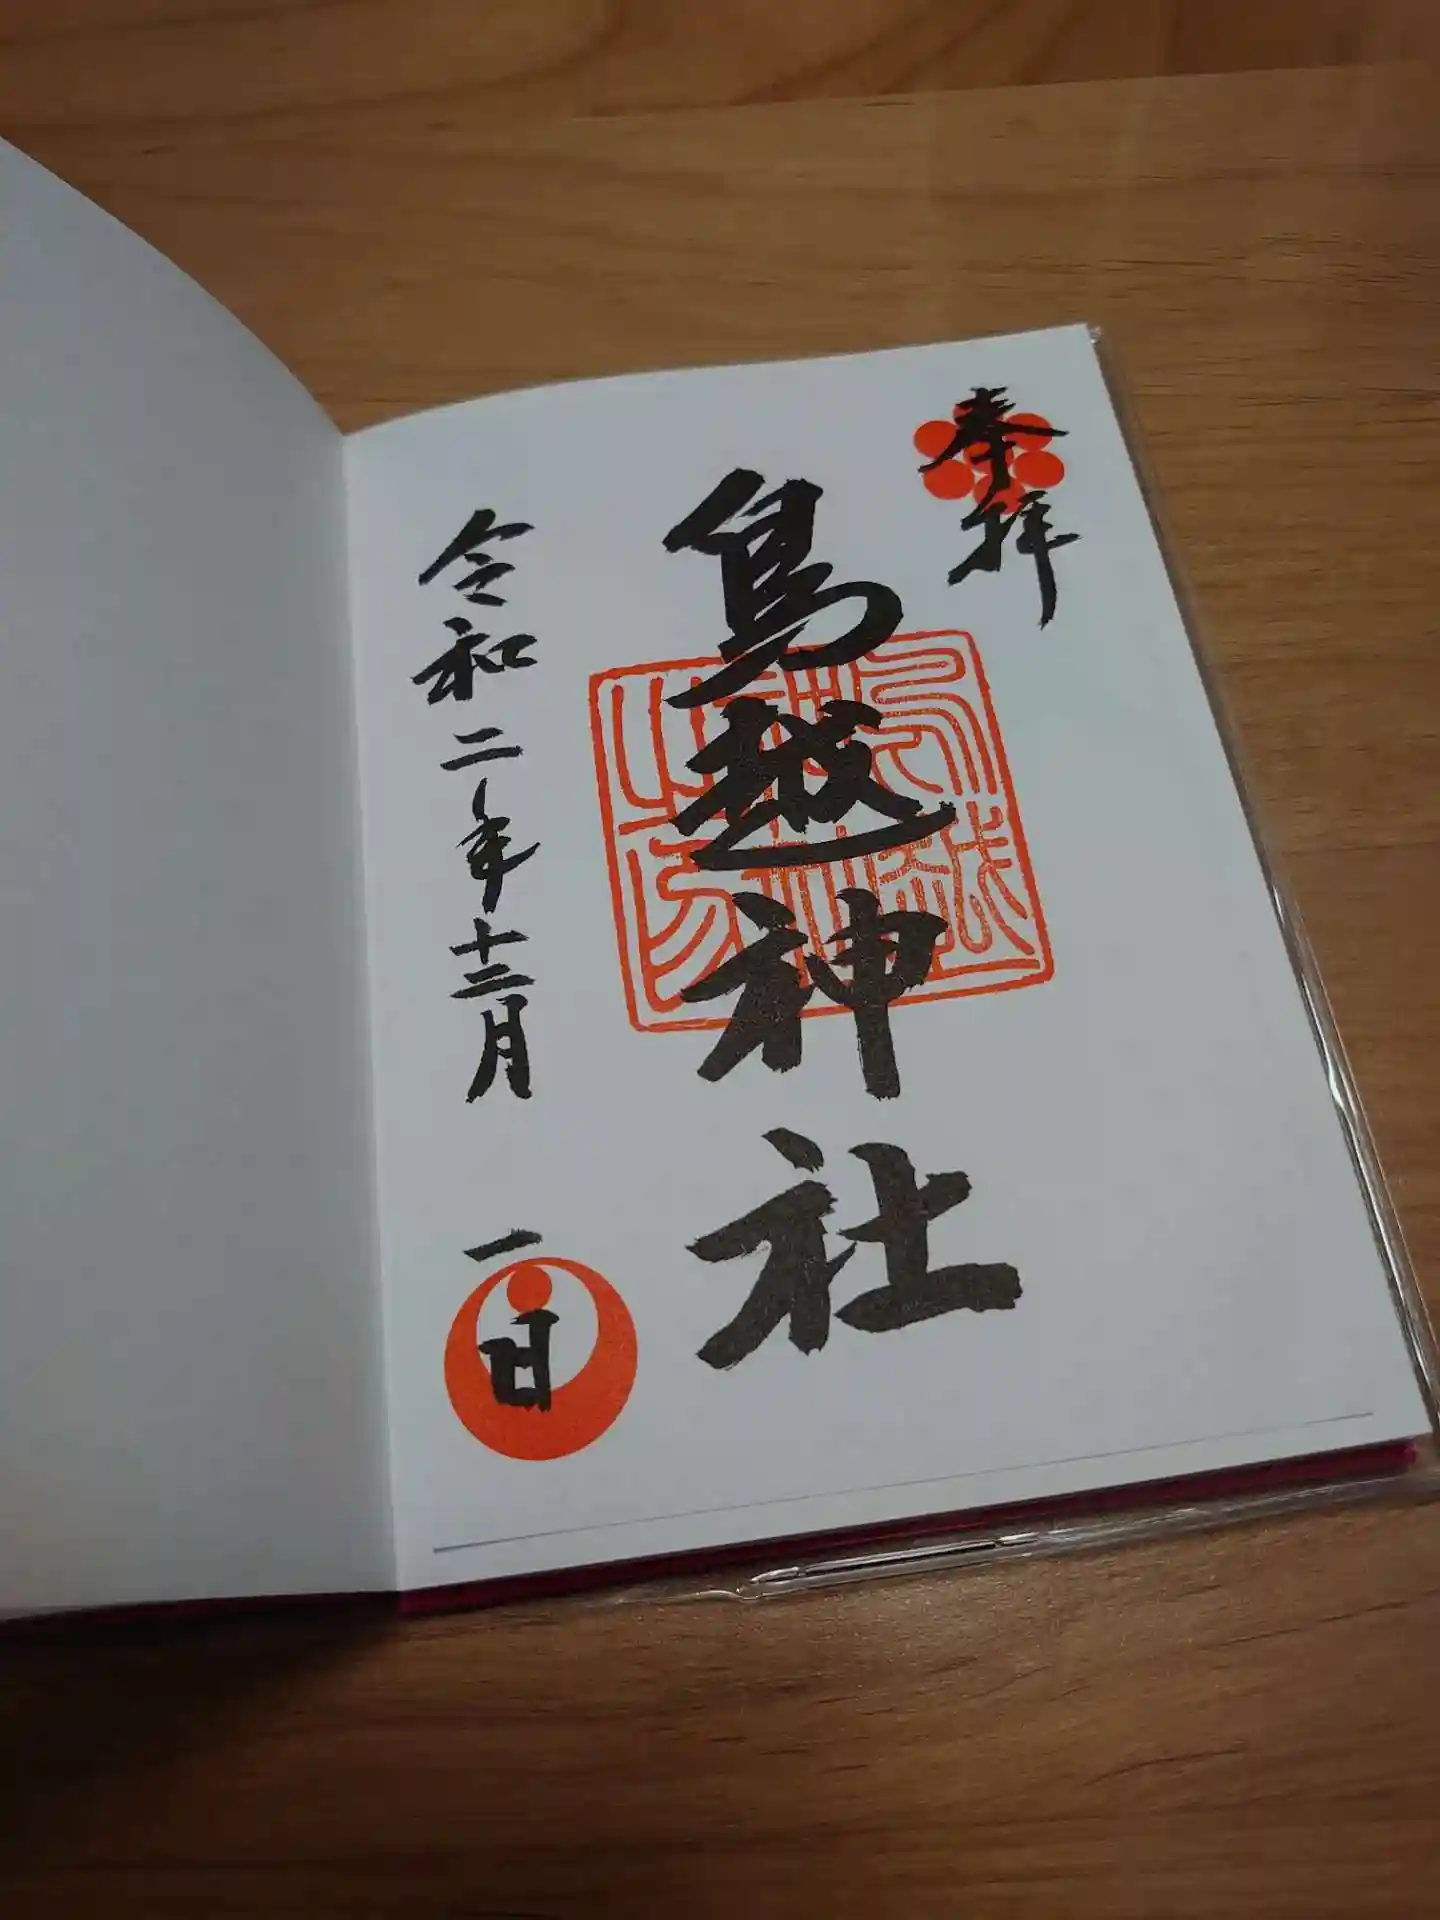 奉拝
鳥越神社
令和二年十二月一日